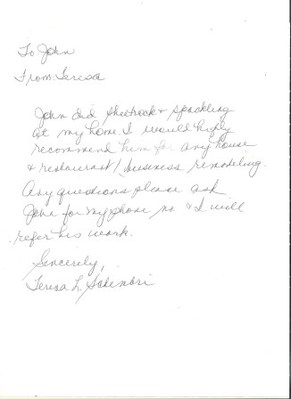 To John
From: Teresa
John did Sheetrock & spackling
at my home. I would highly
recommend him for any house
& restaurant/business remodeling.
Any questions please ask
John for my phone no & I will
refer his work.
Sincerely,
Teresa L.